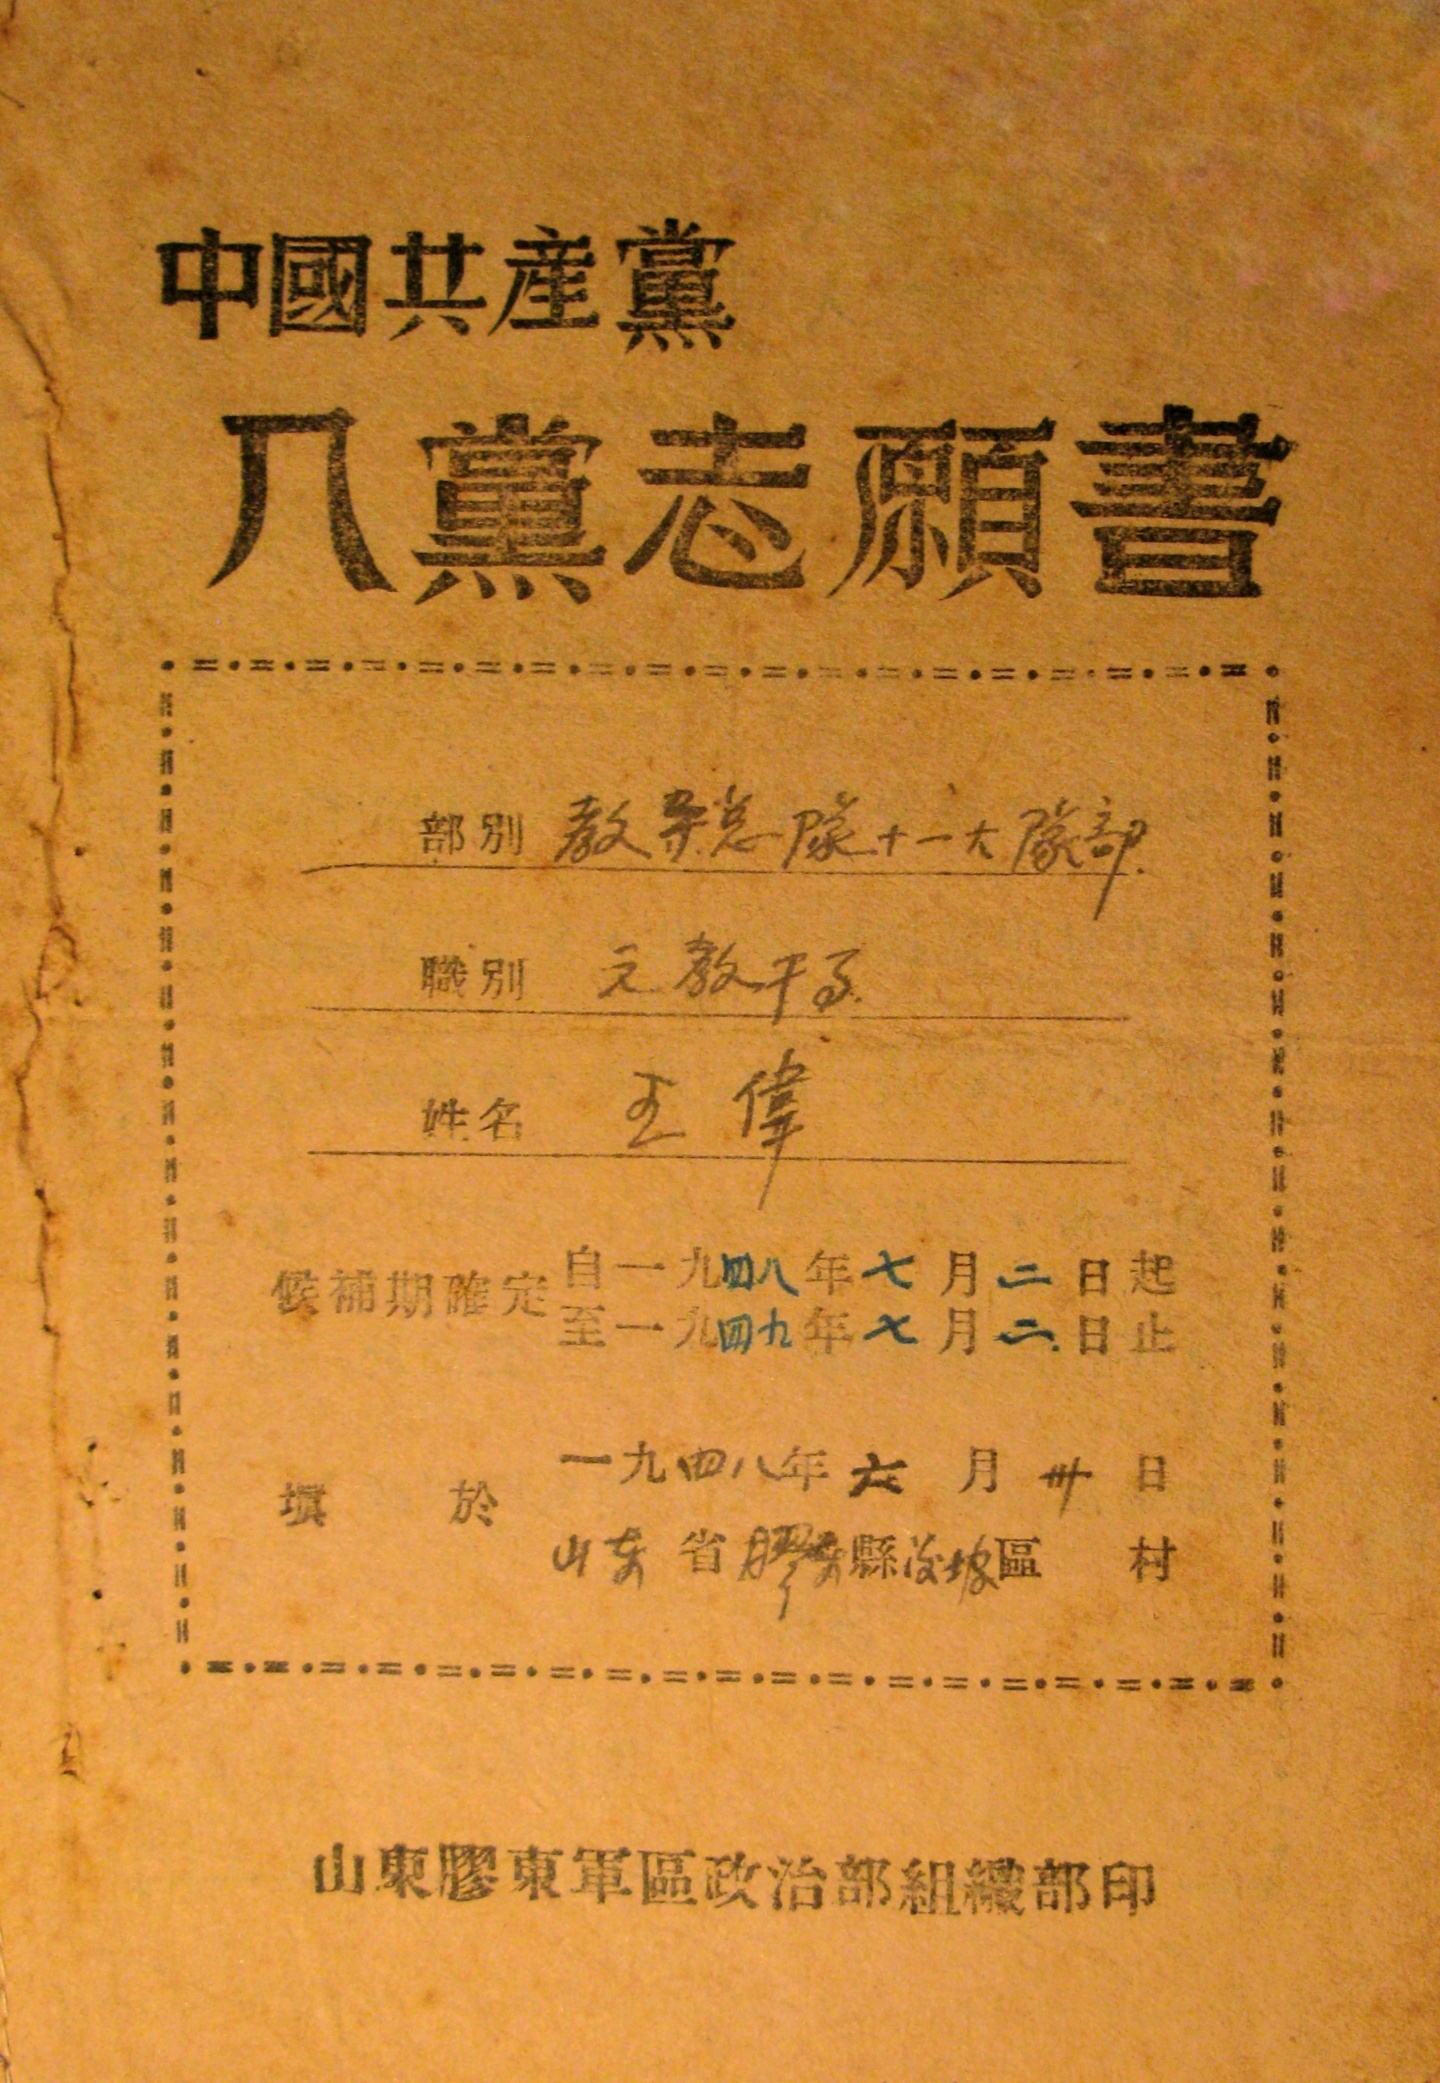 中國共産黨
入黨志願書
部別 教導总隊十一大隊部
職別 文教干事
姓名 王偉
候補期確定
自一九四八年七月二日起
至一九四九年七月二日止
填於
一九四八年六月卅日
山东省膠东縣 坡區 村
山東膠東軍區政治部組織部印